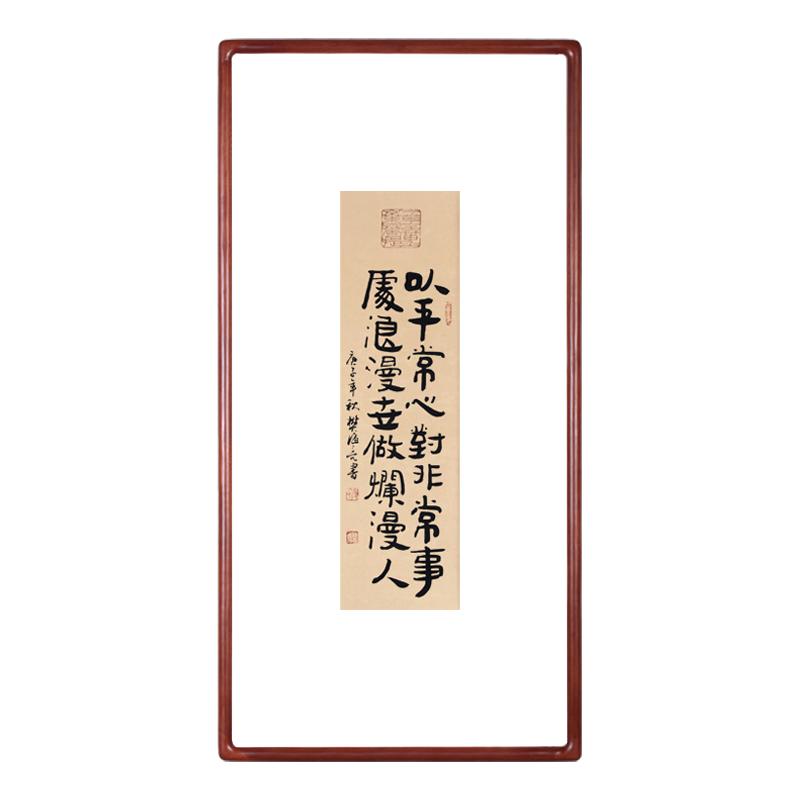 以平常心對非常事
處浪漫世做爛漫人
庚子年秋樊海亮書